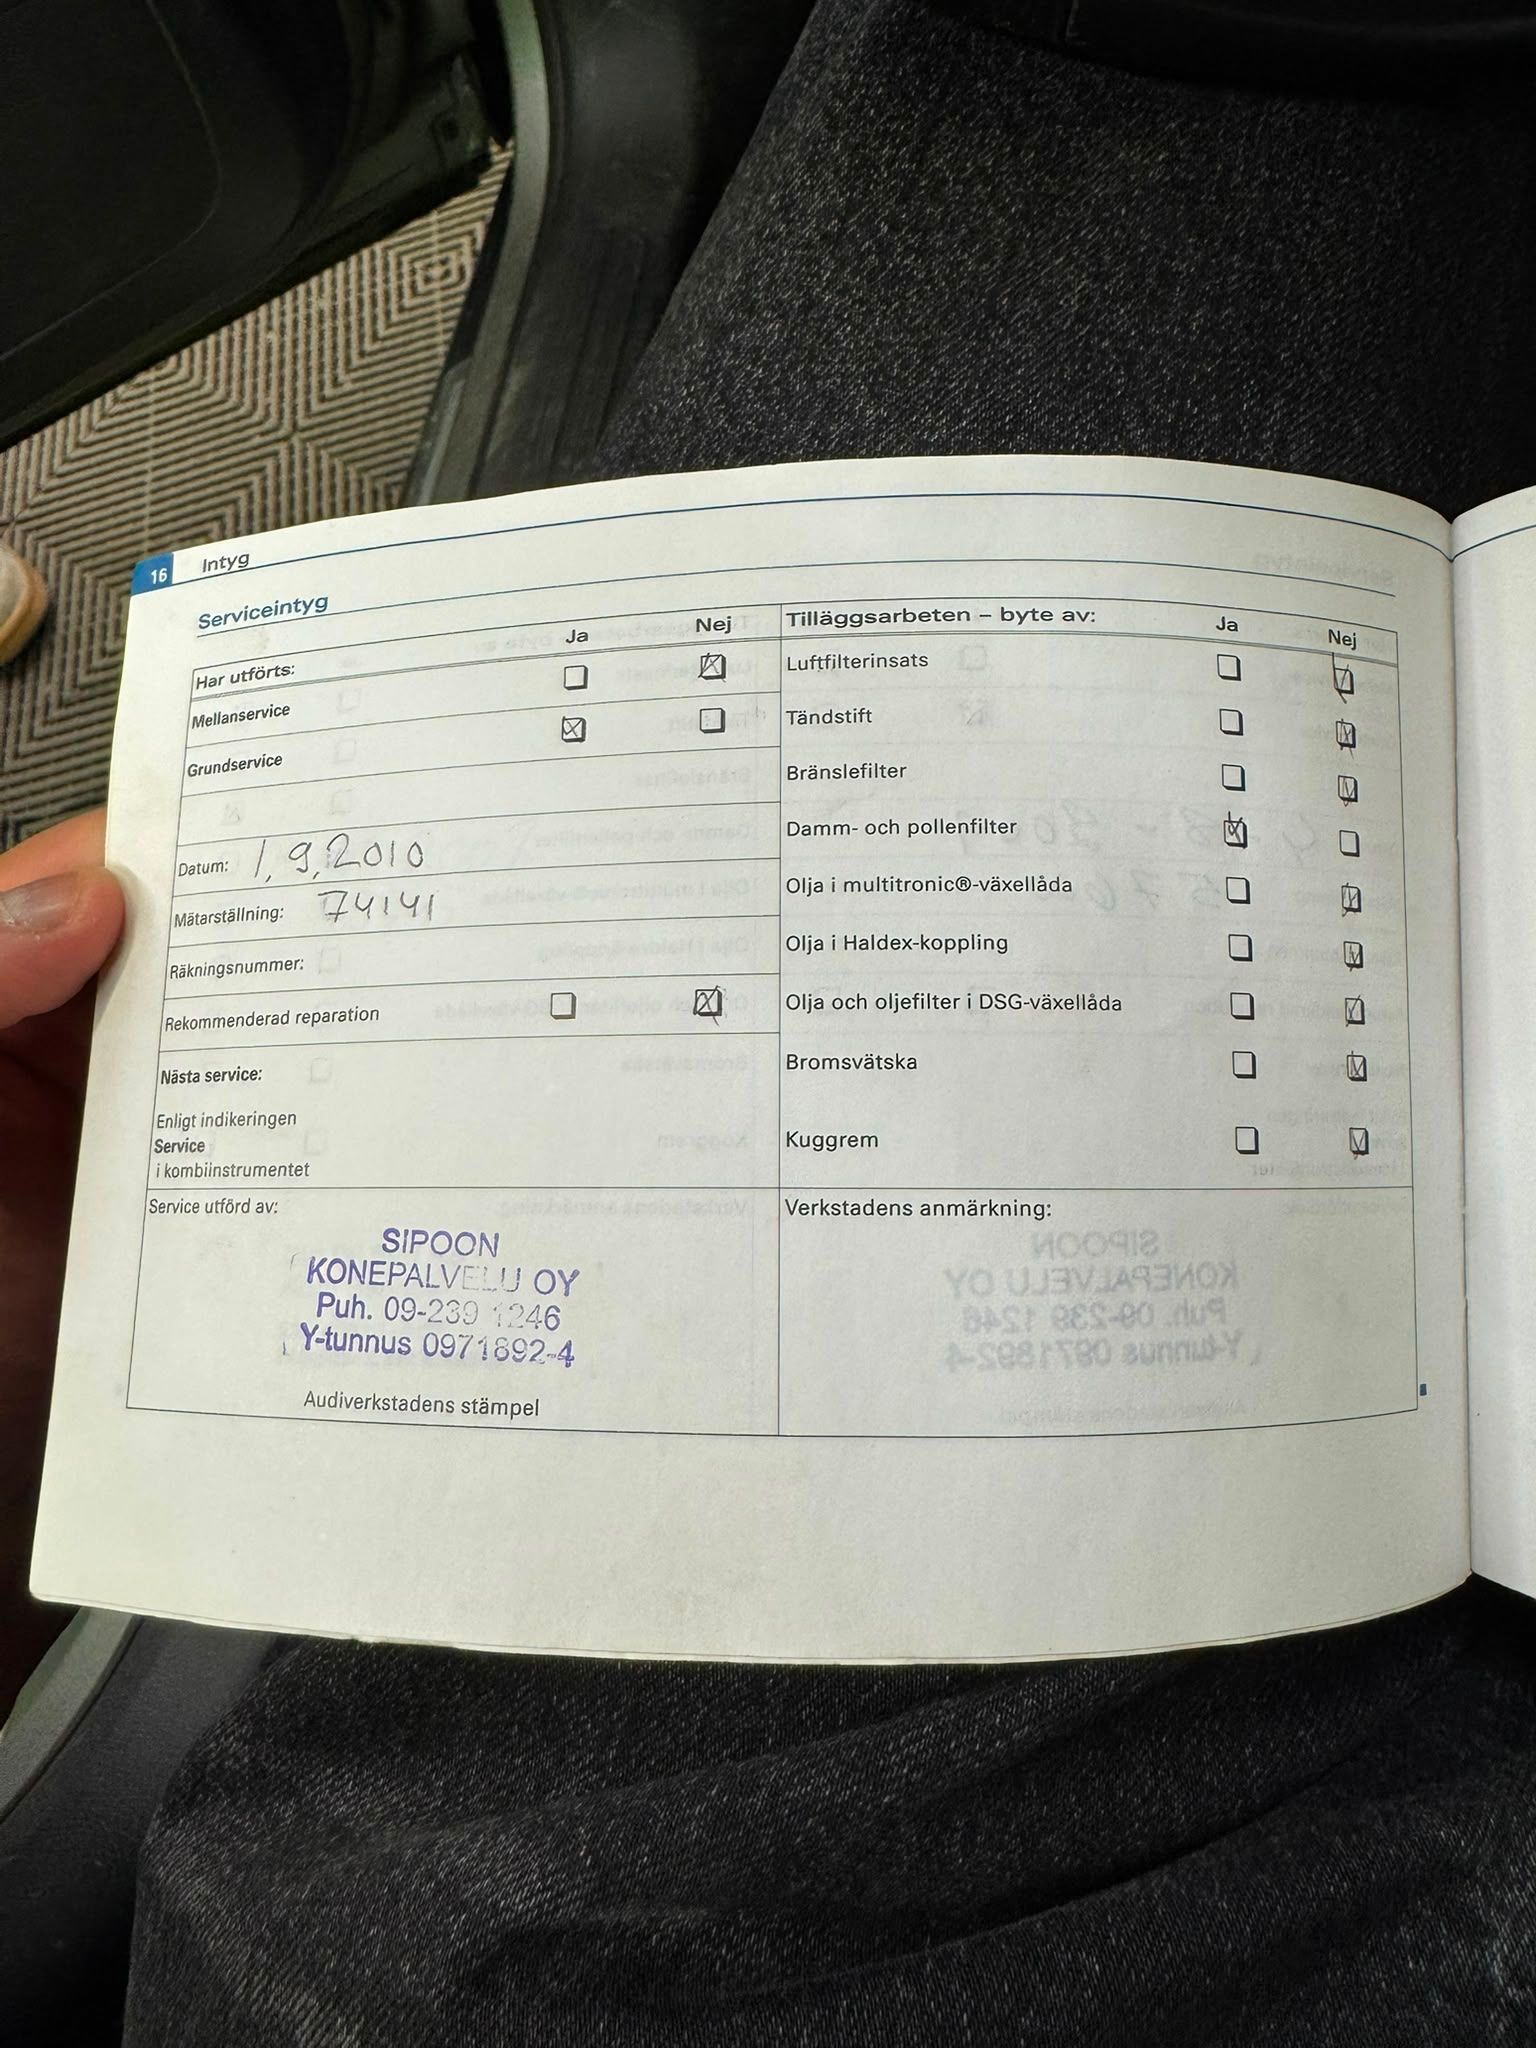 16 Intyg
Serviceintyg
Ja Nej
Har utförts:
Mellanservice
Grundservice
Datum: 1,9,2010
Mätarställning: 74141
Räkningsnummer:
Rekommenderad reparation
Nästa service:
Enligt indikeringen
Service
i kombiinstrumentet
Service utförd av:
SIPOON
KONEPALVELU OY
Puh. 09-239 1246
Y-tunnus 0971892-4
Audiverkstadens stämpel
Tilläggsarbeten – byte av: Ja Nej
Luftfilterinsats
Tändstift
Bränslefilter
Damm- och pollenfilter
Olja i multitronic®-växellåda
Olja i Haldex-koppling
Olja och oljefilter i DSG-växellåda
Bromsvätska
Kuggrem
Verkstadens anmärkning: